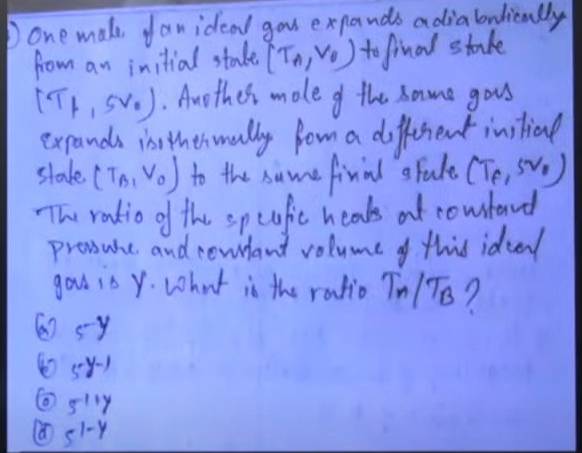 ) One mole of an ideal gas expands adiabatically
from an initial state (TA, V0) to final state
(Tf, 5V0). Another mole of the same gas
expands isothermally from a different initial
state (TB, V0) to the same final state (Tf, 5V0)
The ratio of the specific heats at constant
pressure and constant volume of this ideal
gas is γ. What is the ratio TA/TB?
(a) 5-γ
(b) 5γ-1
(c) 51+γ
(d) 51-γ